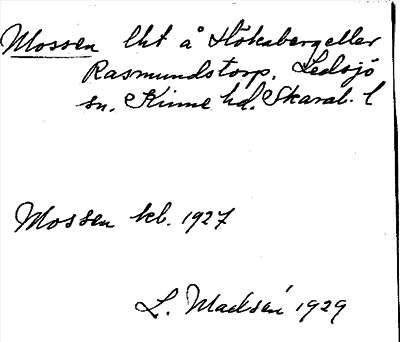 Mossen lht å Hökaberg eller
Rasmundstorp. Ledsjö
sn. Kinne hd. Skarab. l
Mossen kb. 1927
L. Madsén 1929